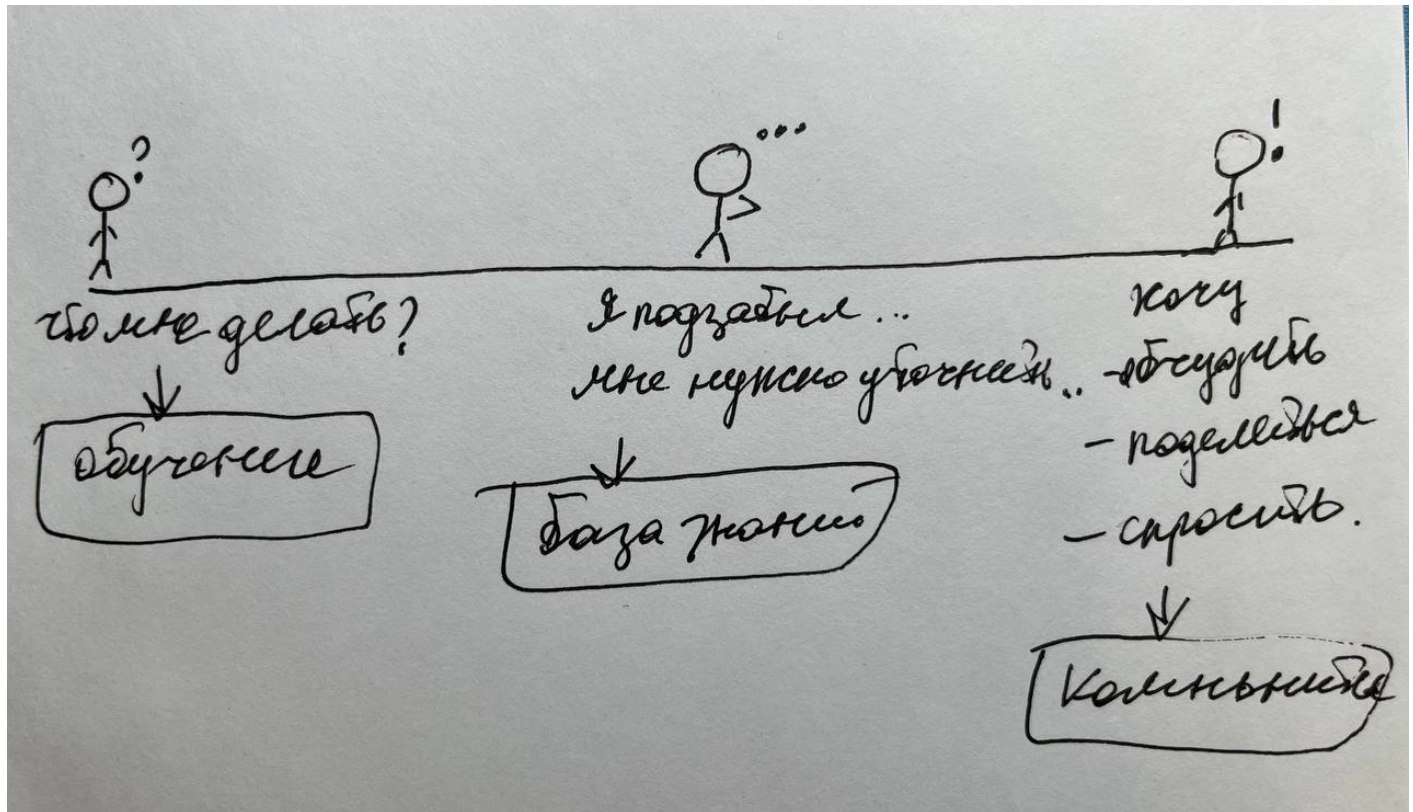 ?
...
!
что мне делать?
обучение
Я подзабыл...
мне нужно уточнить..
база знаний
хочу
- обсудить
- поделиться
- спросить.
Комьюнити